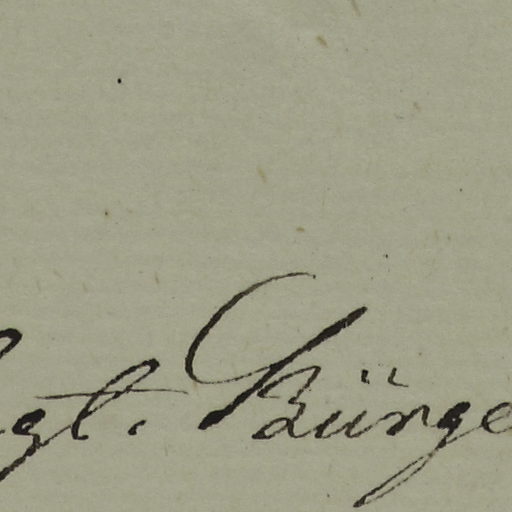 gt. Bürge